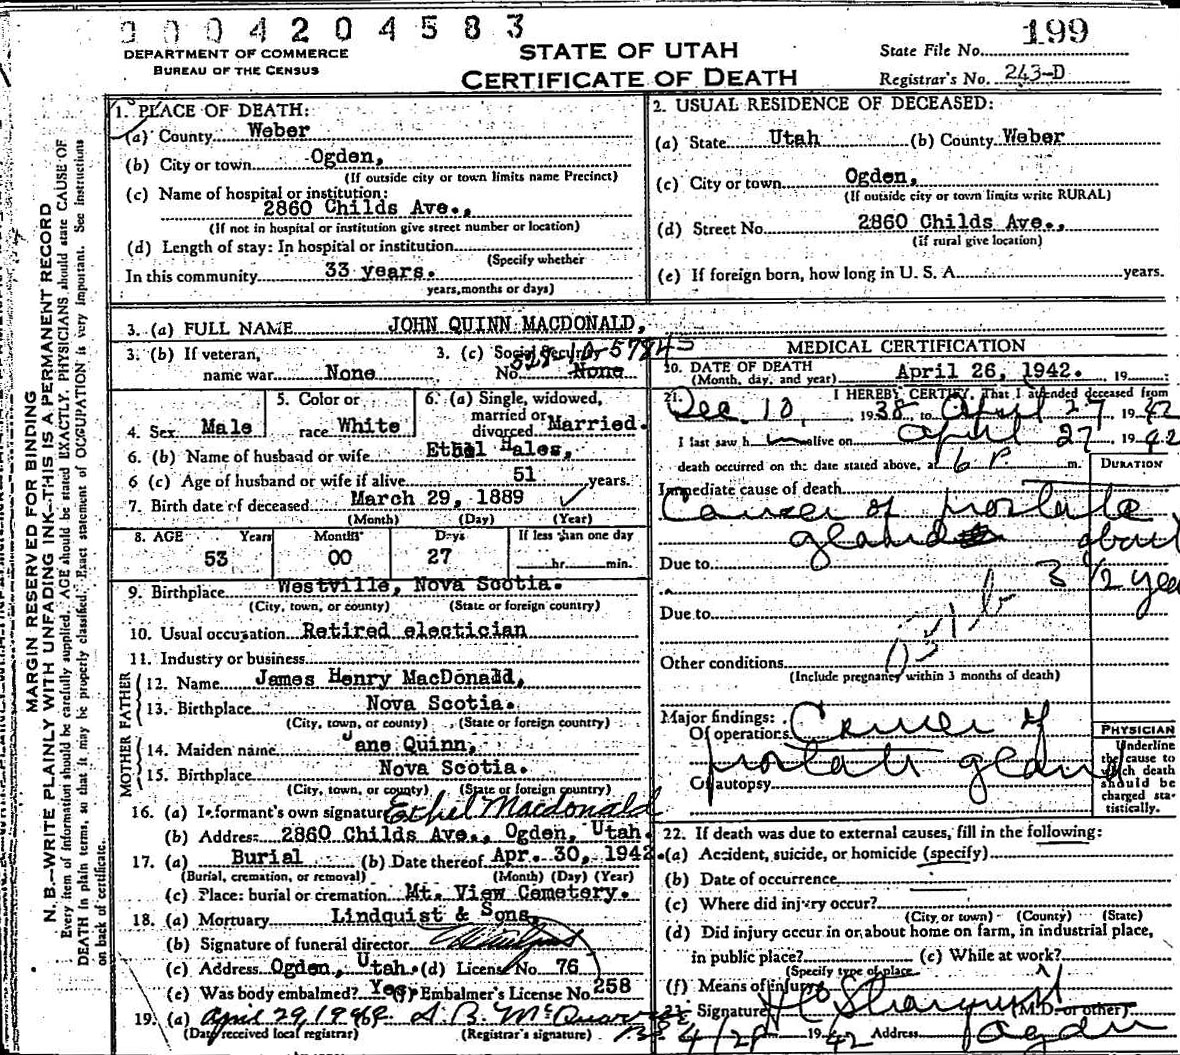 0004204583
DEPARTMENT OF COMMERCE
BUREAU OF THE CENSUS
STATE OF UTAH
CERTIFICATE OF DEATH
State File No. 199
Registrar's No. 243-D
MARGIN RESERVED FOR BINDING
N. B.—WRITE PLAINLY WITH UNFADING INK—THIS IS A PERMANENT RECORD
Every item of information should be carefully supplied. AGE should be stated EXACTLY. PHYSICIANS should state CAUSE OF
DEATH in plain terms, so that it may be properly classified. Exact statement of OCCUPATION is very important. See instructions
on back of certificate.
1. PLACE OF DEATH:
(a) County Weber
(b) City or town Ogden,
(If outside city or town limits name Precinct)
(c) Name of hospital or institution:
2860 Childs Ave.,
(If not in hospital or institution give street number or location)
(d) Length of stay: In hospital or institution
(Specify whether
In this community 33 years.
years, months or days)
2. USUAL RESIDENCE OF DECEASED:
(a) State Utah (b) County Weber
(c) City or town Ogden,
(If outside city or town limits write RURAL)
(d) Street No. 2860 Childs Ave.,
(If rural give location)
(e) If foreign born, how long in U. S. A. years.
3. (a) FULL NAME JOHN QUINN MACDONALD,
3. (b) If veteran,
name war None
3. (c) Social Security
No. None
4. Sex Male
5. Color or
race White
6. (a) Single, widowed,
married or
divorced Married.
6. (b) Name of husband or wife Ethel Hales,
6 (c) Age of husband or wife if alive 51 years.
7. Birth date of deceased March 29, 1889
(Month) (Day) (Year)
8. AGE Years Months Days If less than one day
53 00 27 hr. min.
9. Birthplace Westville, Nova Scotia.
(City, town, or county) (State or foreign country)
10. Usual occupation Retired electician
11. Industry or business
FATHER
12. Name James Henry MacDonald,
13. Birthplace Nova Scotia.
(City, town, or county) (State or foreign country)
MOTHER
14. Maiden name Jane Quinn,
15. Birthplace Nova Scotia.
(City, town, or county) (State or foreign country)
16. (a) Informant's own signature Ethel Macdonald
(b) Address 2860 Childs Ave., Ogden, Utah.
17. (a) Burial (b) Date thereof Apr. 30, 1942.
(Burial, cremation, or removal) (Month) (Day) (Year)
(c) Place: burial or cremation Mt. View Cemetery.
18. (a) Mortuary Lindquist & Sons,
(b) Signature of funeral director
(c) Address Ogden, Utah. (d) License No. 76
(e) Was body embalmed? Yes (f) Embalmer's License No. 258
19. (a) April 29, 1942
(Date received local registrar) (Registrar's signature)
MEDICAL CERTIFICATION
20. DATE OF DEATH
(Month, day, and year) April 26, 1942. 19
21. I HEREBY CERTIFY, That I attended deceased from
Dec 10, 1938 to April 27 1942
I last saw h im alive on April 27 1942
death occurred on the date stated above, at 6 P. m.
DURATION
Immediate cause of death
Cancer of prostate
gland about
Due to 3 1/2 yea
Due to
Other conditions
(Include pregnancy within 3 months of death)
Major findings:
Of operations Cancer of
prostate gland
Of autopsy
PHYSICIAN
Underline
the cause to
which death
should be
charged sta-
tistically.
22. If death was due to external causes, fill in the following:
(a) Accident, suicide, or homicide (specify)
(b) Date of occurrence
(c) Where did injury occur?
(City, or town) (County) (State)
(d) Did injury occur in or about home on farm, in industrial place,
in public place? (e) While at work?
(Specify type of place
(f) Means of injury
23. Signature (M.D. or other)
4/29 1942 Address Ogden